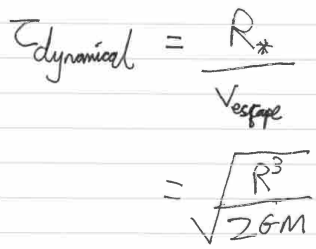 τ_dynamical = R_* / V_escape
= √(R³ / 2GM)